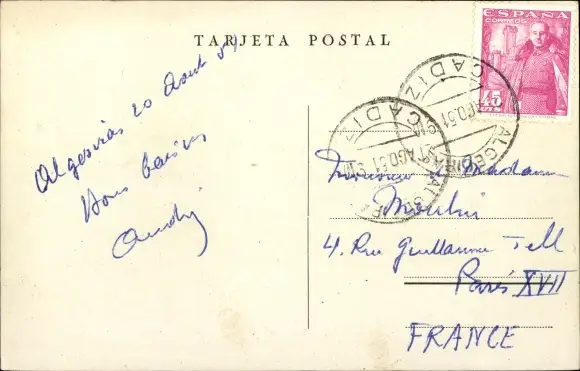 TARJETA POSTAL
ESPAÑA
CORREOS
45
CADIZ
AGO.51
ALGECIRAS
CADIZ
AGO.51
Algesiras 20 Aout 51
Bons baisers
André
Monsieur et Madame
Moulin
4. Rue Guillaume Tell
Paris XVII
FRANCE